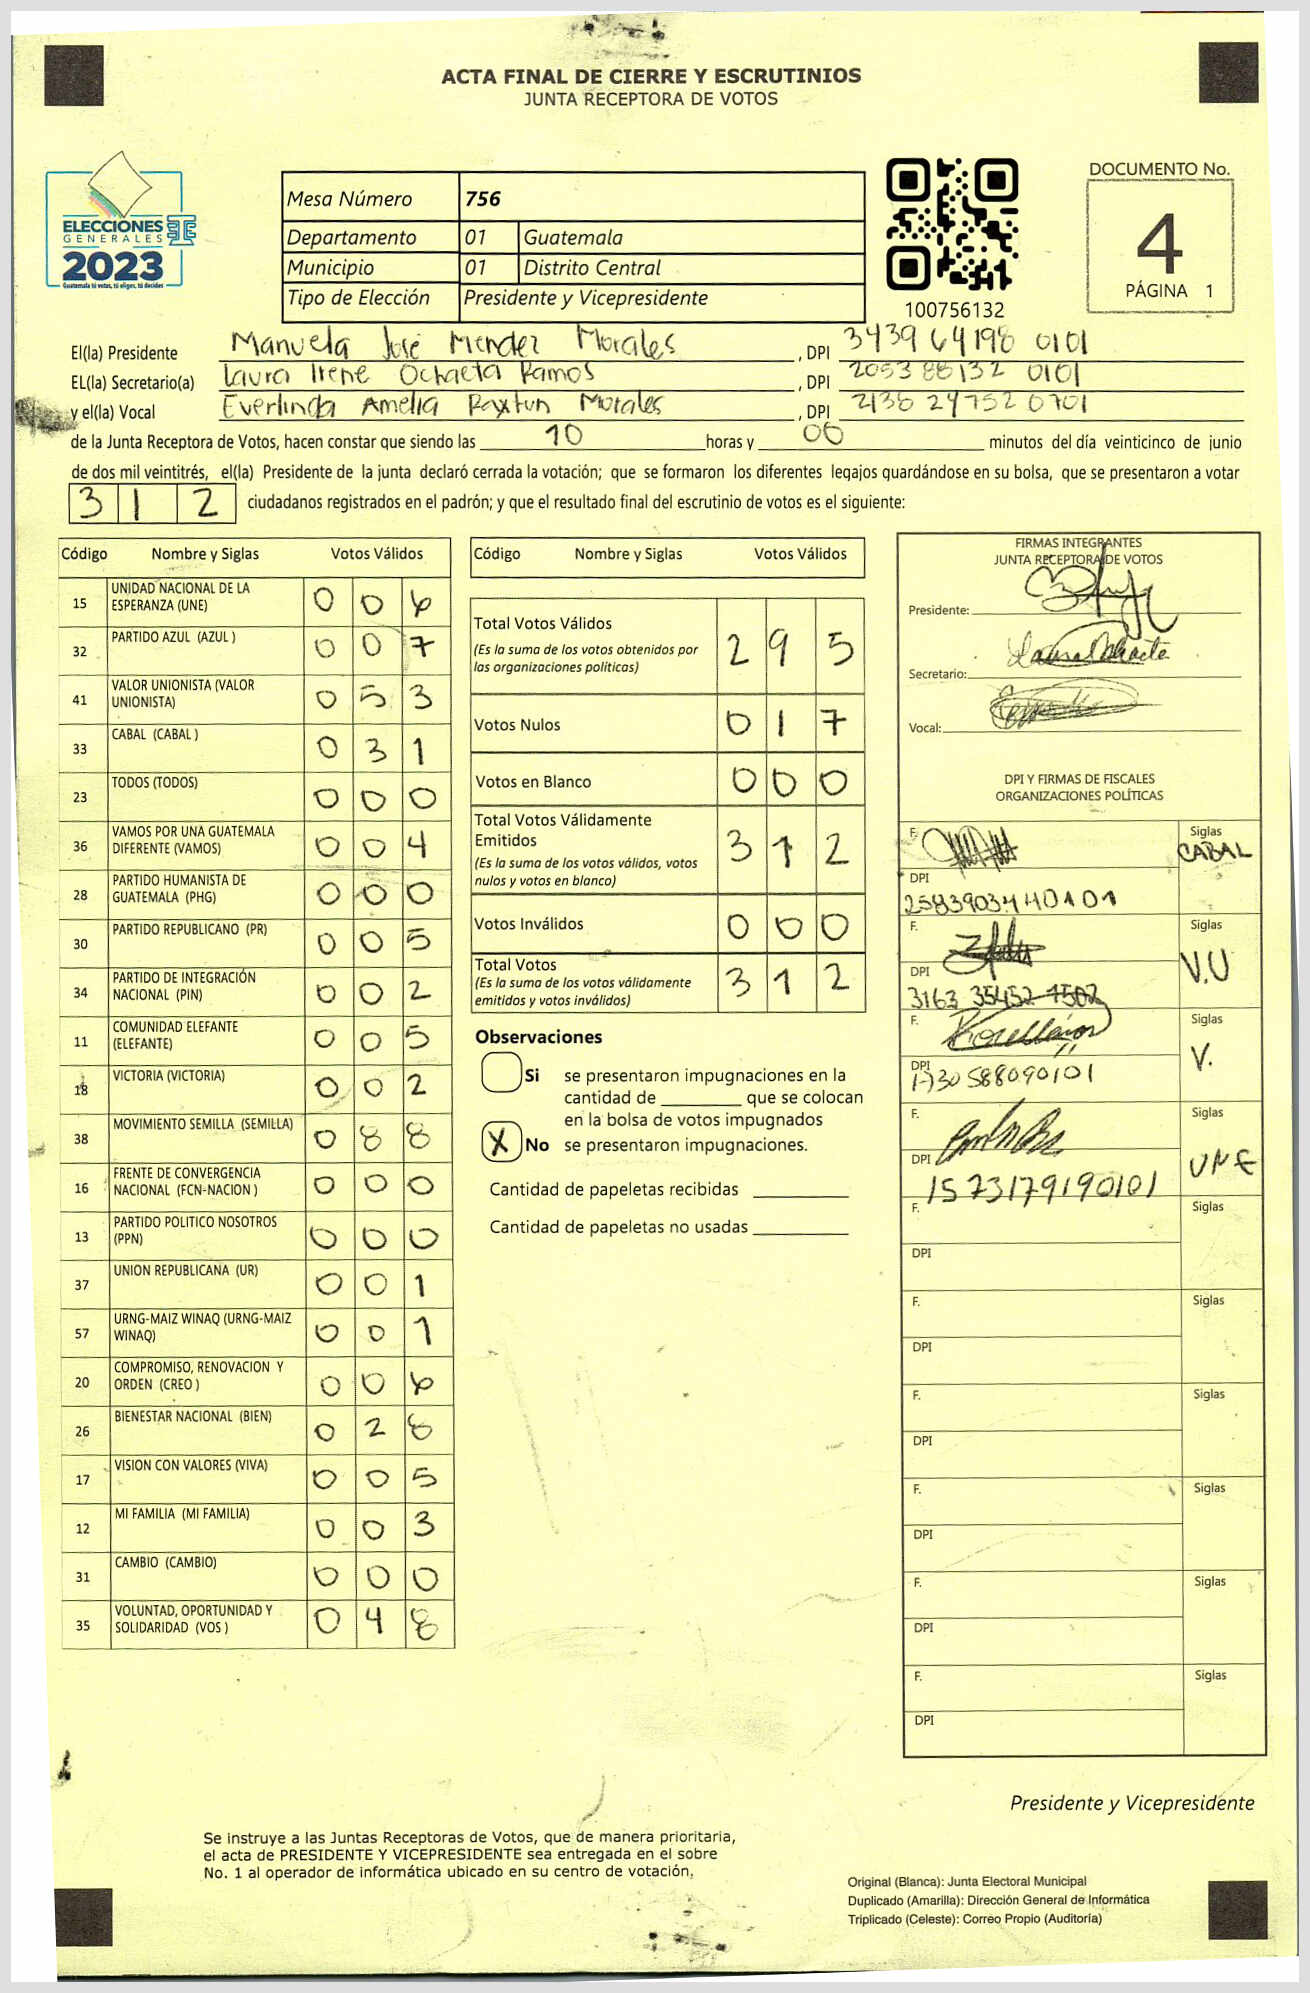 ACTA FINAL DE CIERRE Y ESCRUTINIOS
JUNTA RECEPTORA DE VOTOS
ELECCIONES
GENERALES
2023
Guatemala tú votas, tú eliges, tú decides
Mesa Número 756
Departamento 01 Guatemala
Municipio 01 Distrito Central
Tipo de Elección Presidente y Vicepresidente
100756132
DOCUMENTO No.
4
PÁGINA 1
El(la) Presidente Manuela José Mendez Morales, DPI 3439 64198 0101
EL(la) Secretario(a) Laura Irene Ochaeta Ramos, DPI 2053 88132 0101
y el(la) Vocal Everlinda Amelia Raxtun Morales, DPI 2138 24752 0701
de la Junta Receptora de Votos, hacen constar que siendo las 10 horas y 00 minutos del día veinticinco de junio
de dos mil veintitrés, el(la) Presidente de la junta declaró cerrada la votación; que se formaron los diferentes legajos guardándose en su bolsa, que se presentaron a votar
312 ciudadanos registrados en el padrón; y que el resultado final del escrutinio de votos es el siguiente:
Código Nombre y Siglas Votos Válidos
15 UNIDAD NACIONAL DE LA ESPERANZA (UNE) 0 0 6
32 PARTIDO AZUL (AZUL ) 0 0 7
41 VALOR UNIONISTA (VALOR UNIONISTA) 0 5 3
33 CABAL (CABAL ) 0 3 1
23 TODOS (TODOS) 0 0 0
36 VAMOS POR UNA GUATEMALA DIFERENTE (VAMOS) 0 0 4
28 PARTIDO HUMANISTA DE GUATEMALA (PHG) 0 0 0
30 PARTIDO REPUBLICANO (PR) 0 0 5
34 PARTIDO DE INTEGRACIÓN NACIONAL (PIN) 0 0 2
11 COMUNIDAD ELEFANTE (ELEFANTE) 0 0 5
18 VICTORIA (VICTORIA) 0 0 2
38 MOVIMIENTO SEMILLA (SEMILLA) 0 8 8
16 FRENTE DE CONVERGENCIA NACIONAL (FCN-NACION ) 0 0 0
13 PARTIDO POLITICO NOSOTROS (PPN) 0 0 0
37 UNION REPUBLICANA (UR) 0 0 1
57 URNG-MAIZ WINAQ (URNG-MAIZ WINAQ) 0 0 1
20 COMPROMISO, RENOVACION Y ORDEN (CREO ) 0 0 6
26 BIENESTAR NACIONAL (BIEN) 0 2 8
17 VISION CON VALORES (VIVA) 0 0 5
12 MI FAMILIA (MI FAMILIA) 0 0 3
31 CAMBIO (CAMBIO) 0 0 0
35 VOLUNTAD, OPORTUNIDAD Y SOLIDARIDAD (VOS ) 0 4 8
Código Nombre y Siglas Votos Válidos
Total Votos Válidos 2 9 5
(Es la suma de los votos obtenidos por
las organizaciones políticas)
Votos Nulos 0 1 7
Votos en Blanco 0 0 0
Total Votos Válidamente
Emitidos 3 1 2
(Es la suma de los votos válidos, votos
nulos y votos en blanco)
Votos Inválidos 0 0 0
Total Votos 3 1 2
(Es la suma de los votos válidamente
emitidos y votos inválidos)
Observaciones
Si se presentaron impugnaciones en la
cantidad de ________ que se colocan
en la bolsa de votos impugnados
X No se presentaron impugnaciones.
Cantidad de papeletas recibidas
Cantidad de papeletas no usadas
FIRMAS INTEGRANTES
JUNTA RECEPTORA DE VOTOS
Presidente:
Secretario:
Vocal:
DPI Y FIRMAS DE FISCALES
ORGANIZACIONES POLÍTICAS
F. Siglas CABAL
DPI 2583903440101
F. Siglas V.U
DPI 3163 35452 1502
F. Siglas V.
DPI 1730588090101
F. Siglas UNE
DPI 1573179190101
F. Siglas
DPI
F. Siglas
DPI
F. Siglas
DPI
F. Siglas
DPI
F. Siglas
DPI
F. Siglas
DPI
Presidente y Vicepresidente
Se instruye a las Juntas Receptoras de Votos, que de manera prioritaria,
el acta de PRESIDENTE Y VICEPRESIDENTE sea entregada en el sobre
No. 1 al operador de informática ubicado en su centro de votación.
Original (Blanca): Junta Electoral Municipal
Duplicado (Amarilla): Dirección General de Informática
Triplicado (Celeste): Correo Propio (Auditoría)